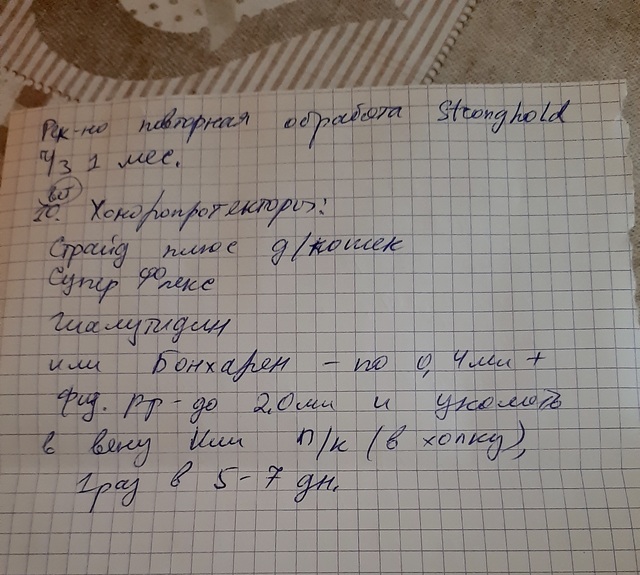 Рек-но повторная обработа Stronghold
ч/з 1 мес.
10. Хондропротекторы:
Страйд плюс д/кошек
Супер Флекс
Гиалутидин
или Бонхарен - по 0,4 мл +
физ. рр - до 2.0 мл и уколоть
в вену или п/к (в холку),
1 раз в 5-7 дн.